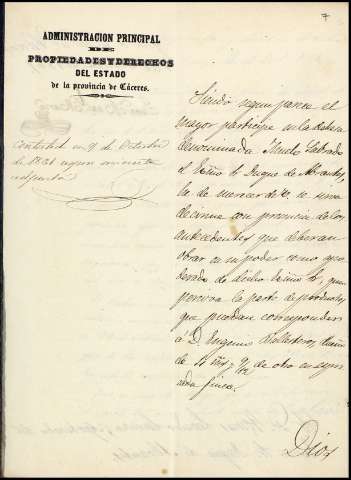 7
ADMINISTRACION PRINCIPAL
DE
PROPIEDADES Y DERECHOS
DEL ESTADO
de la provincia de Cáceres.
Contestada en 9 de Octubre
de 1861 segun minuta
adjunta
Siendo segun parece el
mayor participe en la dehesa
denominada Suelo Labrado
el Exmo Sr Duque de Abrantes,
he de merecer de V. se sirva
decirme con presencia de los
antecedentes que deberan
obrar en su poder como apo-
derado de dicho Exmo Sr, que
persiva la parte de productos
que puedan corresponder
á D. Eugenio
de
de otro en espre-
sada finca.
Dios